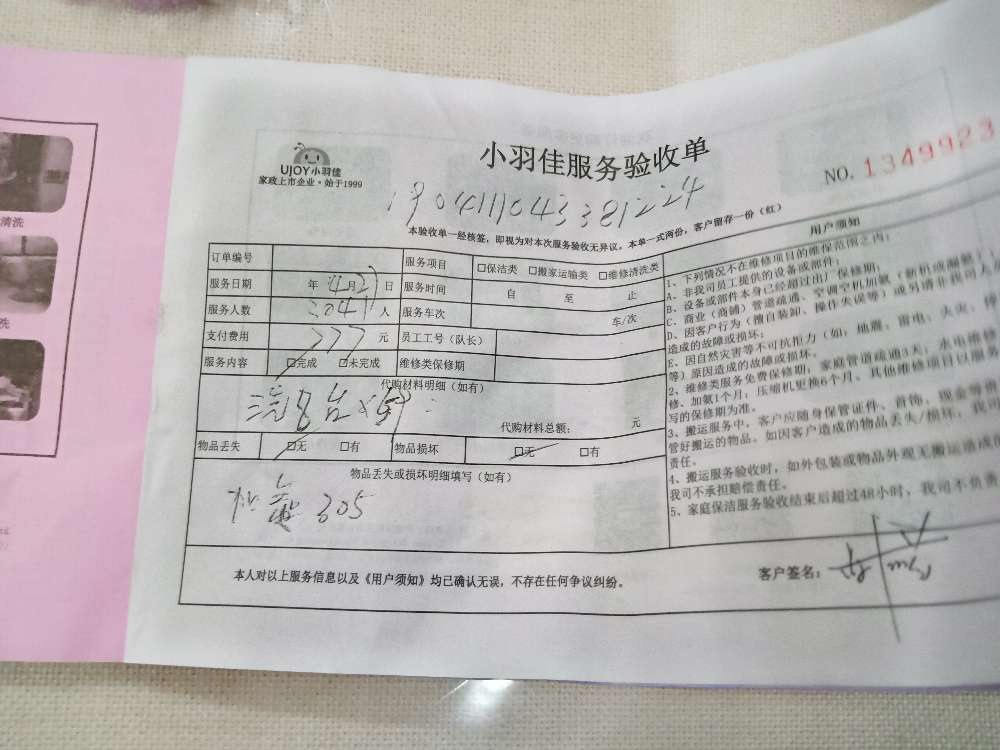 清洗
洗
UJOY小羽佳
家政上市企业·始于1999
小羽佳服务验收单
NO. 1349923
1904111043381224
本验收单一经核签，即视为对本次服务验收无异议。本单一式两份，客户留存一份（红）
订单编号 服务项目 □保洁类 □搬家运输类 □维修清洗类
服务日期 年 月 日 服务时间 自 至 止
服务人数 人 服务车次 车/次
支付费用 777 元 员工工号（队长）
服务内容 □完成 □未完成 维修类保修期
代购材料明细（如有）
代购材料总额： 元
物品丢失 □无 □有 物品损坏 □无 □有
物品丢失或损坏明细填写（如有）
305
本人对以上服务信息以及《用户须知》均已确认无误，不存在任何争议纠纷。
用户须知
1、下列情况不在维修项目的维保范围之内：
A、非我司员工提供的设备或部件；
B、设备或部件本身已经超过出厂保修期；
C、商业（商铺）管道疏通、空调空机加氨（新机或漏氨）
D、因客户行为（擅自装卸、操作失误等）或另请非我司人员
造成的故障或损坏；
E、因自然灾害等不可抗拒力（如：地震、雷电、火灾、
等）原因造成的故障或损坏。
2、维修类服务免费保修期：家庭管道疏通3天，水电维修
修、加氨1个月；压缩机更换6个月、其他维修项目以服务
写的保修期为准。
3、搬运服务中，客户应随身保管证件、首饰、现金等贵
管好搬运的物品。如因客户造成的物品丢失/损坏，我司
责任。
4、搬运服务验收时，如外包装或物品外观无搬运造成
我司不承担赔偿责任。
5、家庭保洁服务验收结束后超过48小时，我司不负责
客户签名：